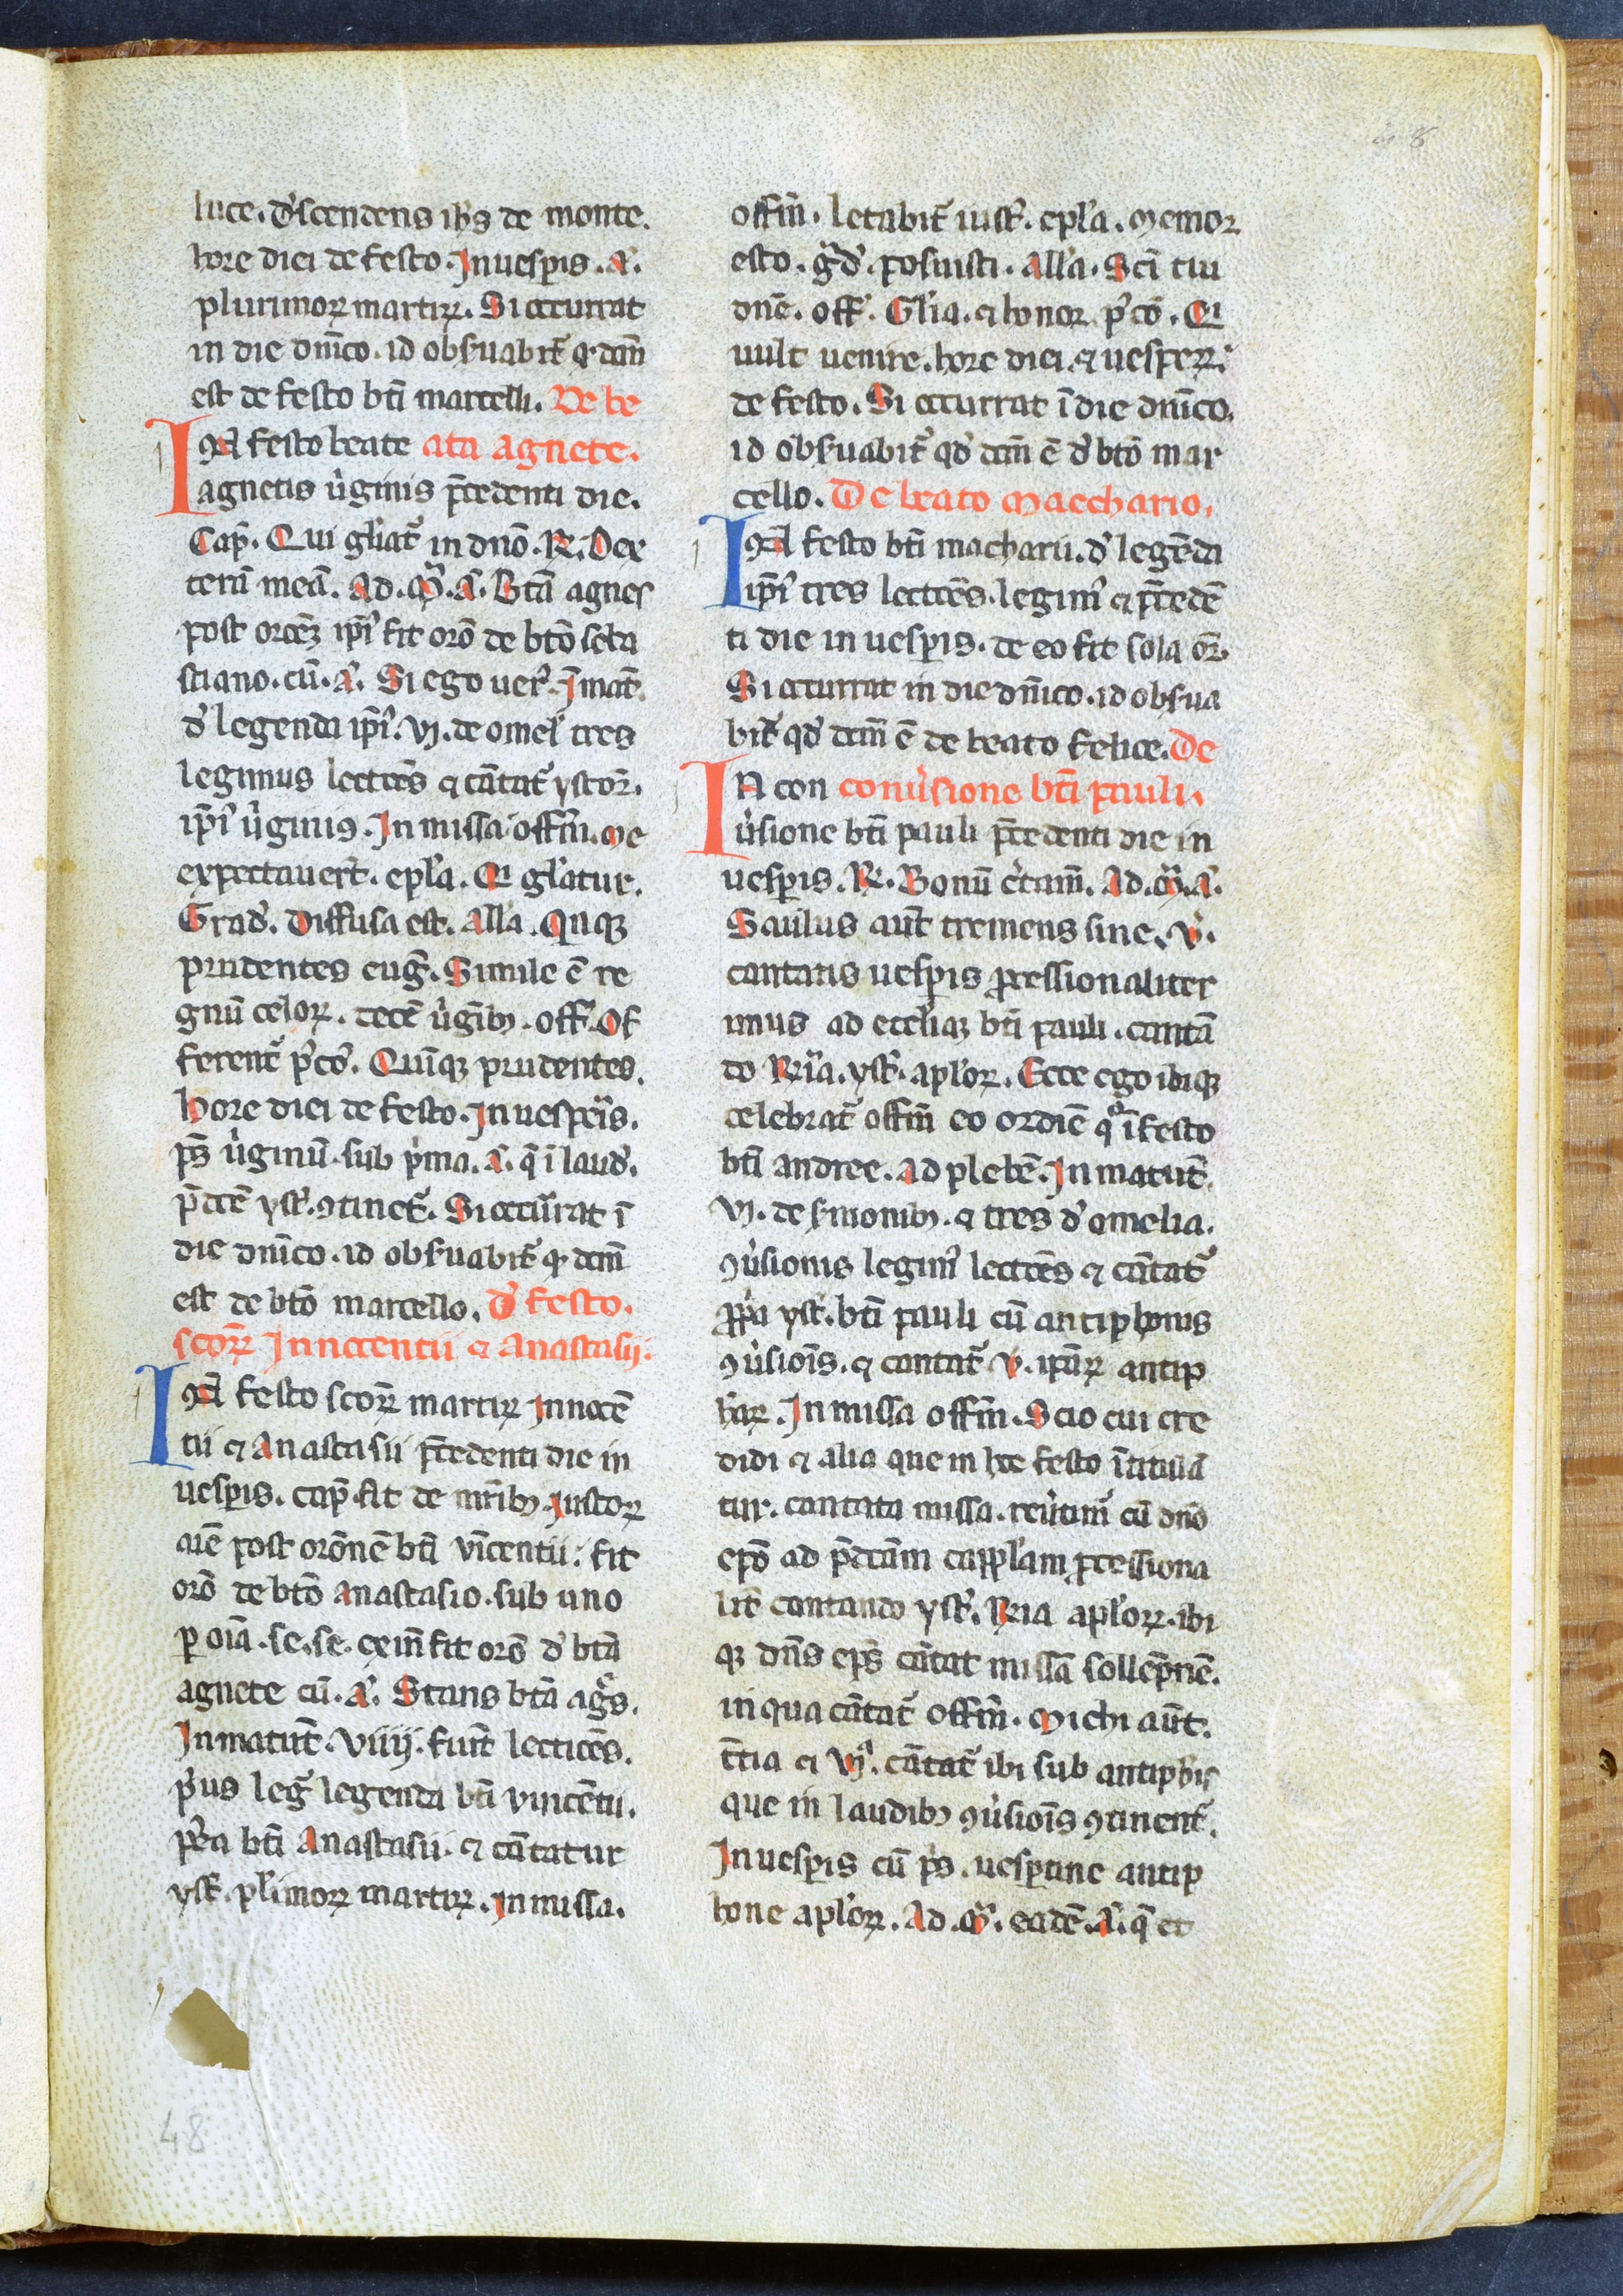 luce. d'scendens ih̅s de monte.
hore diei de festo. In uesp̅is. A̅.
plurimoꝝ martiꝝ. Si occurrat
in die dn̅ico. id obs̅uabit᷑ qđ dc̅m
est de festo bt̅i marcelli. De be
IN festo beate ata agnete.
agnetis u̅ginis p̅cedenti die.
Cap̅. Qui gl̅iat᷑ in dn̅o. R̅. Dex
tera̅ mea̅. Ad. M̅. A̅. Bt̅a agnes
post orōeꝫ ip̅i᷒ fit orō de bt̅o seba
stiano. cu̅. A̅. Si ego uer᷒. In mat̅.
d' legenda ip̅i᷒. vj. de omel' tres
legimus lectōes ⁊ ca̅tat᷑ ystor̅.
ip̅i᷒ u̅ginis. In missa offm̅. Me
expectauer̅t. epl̅a. Qi gl̅iatur.
Grad'. Diffusa est. All̅a. Quīqꝫ
prudentes eug̅. Simile e̅ re
gnu̅ celoꝝ. dece̅ u̅gīb᷒. off̅. Of
ferent᷑ p᷒co̅. Quīqꝫ prudentes.
hore diei de festo. In uesp̅is.
ps̅ u̅ginu̅. sub p̅ma. A̅. q̅ i̅ laud'.
p̅dc̅e yst̅. ꝯtinet᷑. Si occurrat i̅
die dn̅ico. id obs̅uabit᷑ qđ dc̅m
est de bt̅o marcello. D' festo.
sc̅oꝝ Innocentii ⁊ anastasij.
IN festo sc̅oꝝ martiꝝ Innoce̅
tii ⁊ Anastasii p̅cedenti die in
uesp̅is. cap̅. fit de mr̅ib᷒. Iustoꝝ
aīe post orōne̅ bt̅i vīcentii. fit
orō de bt̅o Anastasio. sub uno
ꝑ oīa. se. se. ex in̅ fit orō d' bt̅a
agnete cu̅. A̅. Stans bt̅a ag̅s.
In matut̅. viiij. fiu̅t lectiōes.
p᷒us leg̅ legenda bt̅i vincētii.
p᷒ea bt̅i Anastasii. ⁊ ca̅tatur
yst̅. pl̅imoꝝ martiꝝ. In missa.
offm̅. letabit᷑ iust᷒. epl̅a. Memor
esto. g̅d'. posuisti. All̅a. Sc̅i tui
dn̅e. off̅. Gl̅ia. ⁊ honor. p᷒co̅. Qi
uult uenire. hore diei. ⁊ uesperꝝ
de festo. Si occurrat i̅ die dn̅ico.
id obs̅uabit᷑ qđ dc̅m e̅ d' bt̅o mar
cello. De beato Macchario.
IN festo bt̅i macharii. d' lege̅da
ip̅i᷒ tres lectōes. legim᷒ ⁊ p̅cede̅
ti die in uesp̅is. de eo fit sola or̅.
Si occurrat in die dn̅ico. id obs̅ua
bit᷑ qđ dc̅m e̅ de beato felice. De
IN con conu̅sione bt̅i pauli.
u̅sione bt̅i pauli p̅cedenti die in
uesp̅is. R̅. Bonu̅ c̅tam̅. Ad. M̅. A̅.
Saulus aut̅ tremens sine. v̅.
cantatis uesp̅is ꝓcessionaliter
imus ad eccl̅iaꝫ bt̅i pauli. canta̅
do Rr̅ia. yst̅. apl̅oꝝ. Ecce ego ibiqꝫ
celebrat᷑ offm̅ eo ordīe qͦ i̅ festo
bt̅i andree. Ad plebe̅. In matut̅.
vj. de s̅monib᷒. ⁊ tres d' omelia.
ꝯu̅sionis legim᷒ lectōes ⁊ ca̅tat᷑
ꝓp̅a yst̅. bt̅i pauli cu̅ antiphonis
ꝯu̅siōis. ⁊ cantat᷑ v̅. ip̅aꝝ antip
haꝝ. In missa offm̅. Scio cui cre
didi ⁊ alia que in hoc festo i̅titula̅
tur. cantata missa. reu̅tim᷒ cu̅ dn̅o
ep̅o ad p̅dc̅am cappl̅am ꝓcessiona
lit̅ cantando yst̅. Rr̅ia apl̅oꝝ. ibi
qꝫ dn̅s ep̅s ca̅tat missa̅ sollēpne̅.
in qua ca̅tat᷑ offm̅. Michi aut̅.
t̅tia ⁊ vjͣ. ca̅tat᷑ ibi sub antiph̅is
que in laudib᷒ ꝯu̅siōis ꝯtinent᷑.
In uesp̅is cu̅ ps̅. uesp̅tine antip
hone apl̅oꝝ. Ad. M̅. eade̅. A̅. q̅ et
48